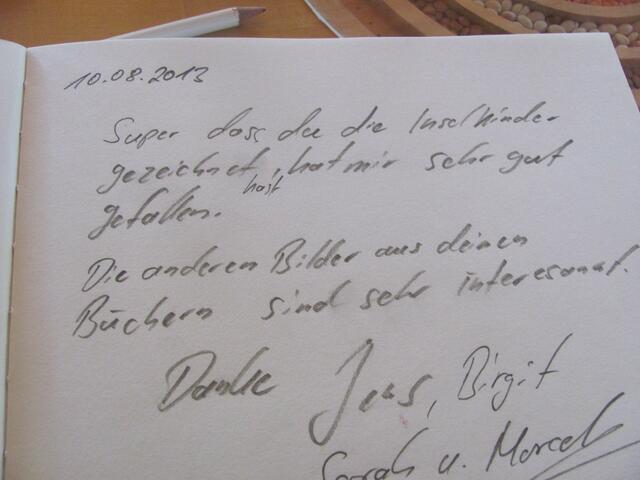 10.08.2013
Super dass du die Inselkinder
gezeichnet, hat mir sehr gut
hast
gefallen.
Die anderen Bilder aus deinen
Büchern sind sehr interesannt.
Danke Jens, Birgit
Sarah u. Marcel